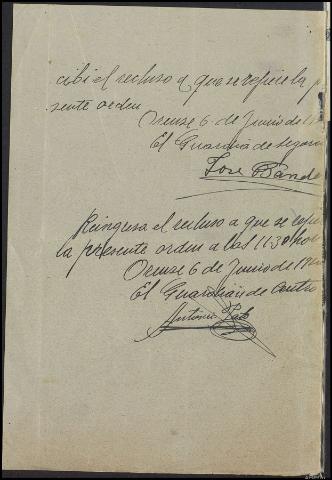 cibi el recluso a que se refiere la p
sente orden
Orense 6 de Junio de 19
El Guardia de Segur
Jose Bande
Reingresa el recluso a que se refie
la presente orden a las 11.30 hor
Orense 6 de Junio de 19
El Guardian de Centro
Antonio